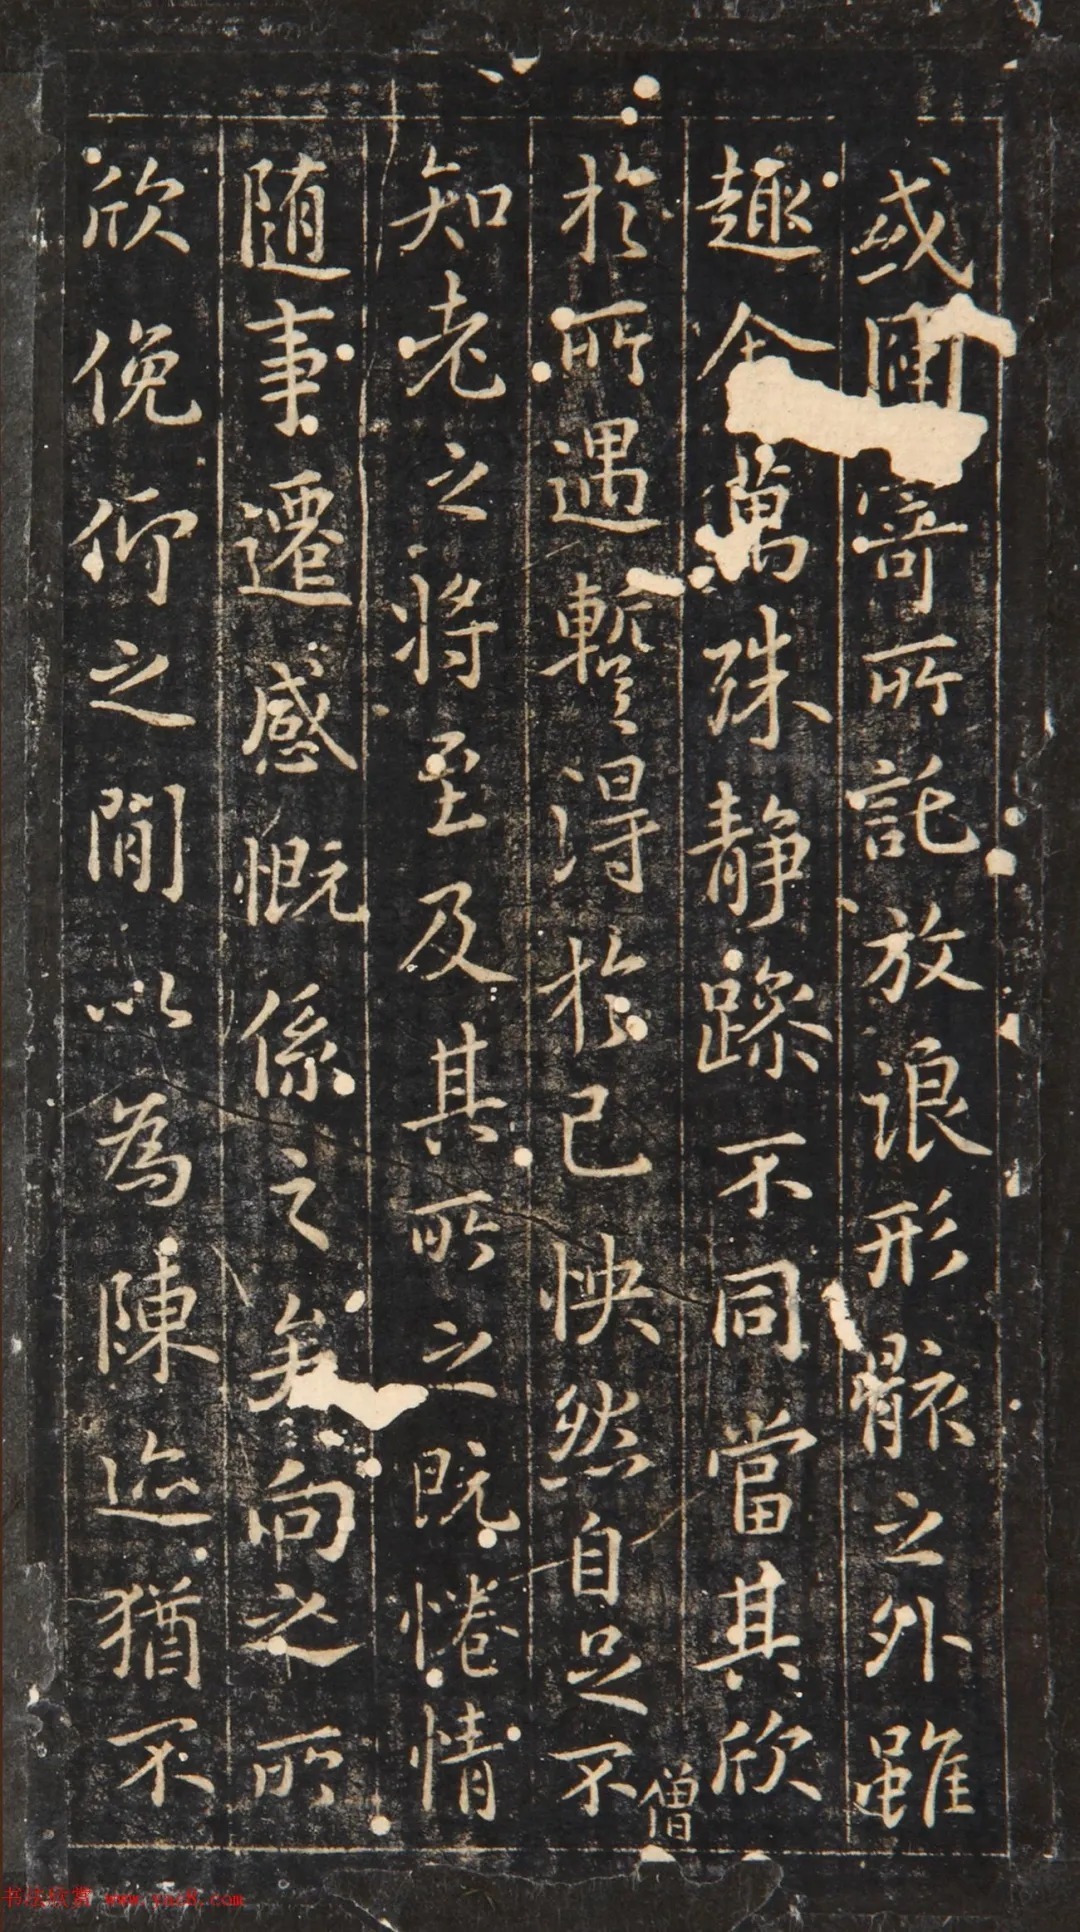 或因寄所託放浪形骸之外雖
趣舍萬殊静躁不同當其欣
僧
於所遇蹔得於己怏然自足不
知老之将至及其所之既惓情
随事遷感慨係之矣向之所
欣俛仰之閒以為陳迹猶不
书法欣赏